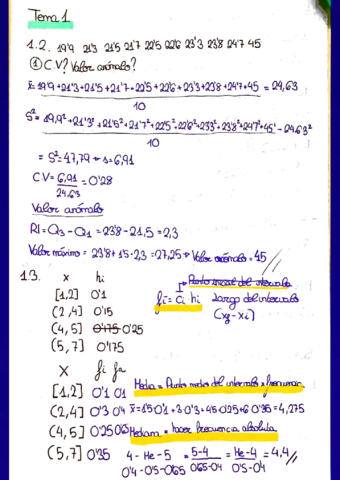 Tema 1
1.2. 19'9 21'3 21'5 21'7 22'5 22'6 23'3 23'8 24'7 45
① C.V? Valor anómalo?
x̄= 19'9+21'3+21'5+21'7+22'5+22'6+23'3+23'8+24'7+45 = 24,63
10
S²= 19,9²+21'3²+21'5²+21'7²+22'5²+22'6²+23'3²+23'8²+24'7²+45² - 24,63²
10
= S²=47,79 → s=6,91
CV= 6,91 = 0'28
24,63
Valor anómalo
RI= Q3 - Q1 = 23'8 - 21,5 = 2,3
Valor máximo = 23'8 + 1'5 · 2,3 = 27,25 → Valor anómalo = 45
1.3. x hi
[1,2] 0'1
(2,4] 0'15
(4,5] 0'175 0'25
(5,7] 0'175
Punto inicial del intervalo
fi = ci hi
Largo del intervalo
x fi fa
[1,2] 0'1 0'1
(2,4] 0'3 0'4
(4,5] 0'25 0'65
(5,7] 0'35
Media = Punto medio del intervalo x frecuencia
x̄ = 1'5 · 0'1 + 3 · 0'3 + 4'5 · 0'25 + 6 · 0'35 = 4,275
Mediana = hacer frecuencia absoluta
4 - Me - 5 = 5-4 = Me-4 = 4,4
0'4 - 0'5 - 0'65 0'65-0'4 0'5-0'4